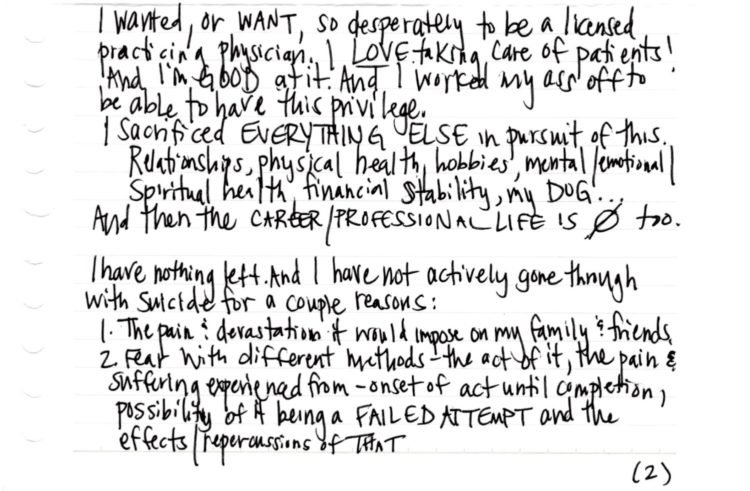 I wanted, or WANT, so desperately to be a licensed
practicing physician. I LOVE taking care of patients!
And I'm GOOD at it. And I worked my ass off to
be able to have this privilege.
I sacrificed EVERYTHING ELSE in pursuit of this.
Relationships, physical health, hobbies, mental/emotional/
Spiritual health, financial stability, my DOG...
And then the CAREER/PROFESSIONAL LIFE IS Ø too.
I have nothing left. And I have not actively gone through
with suicide for a couple reasons:
1. The pain & devastation it would impose on my family & friends
2. Fear with different methods - the act of it, the pain &
suffering experienced from - onset of act until completion,
possibility of it being a FAILED ATTEMPT and the
effects/repercussions of THAT
(2)